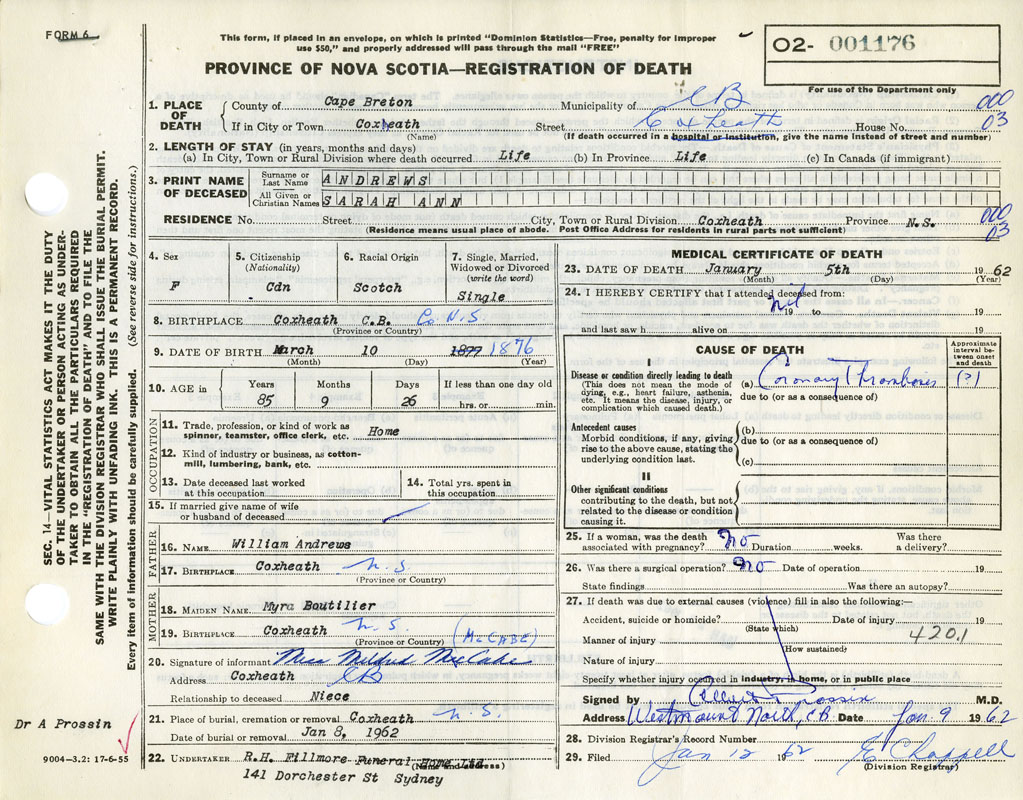 FORM 6
This form, if placed in an envelope, on which is printed "Dominion Statistics—Free, penalty for improper
use $50," and properly addressed will pass through the mail "FREE"
PROVINCE OF NOVA SCOTIA—REGISTRATION OF DEATH
02- 001176
For use of the Department only
SEC. 14—VITAL STATISTICS ACT MAKES IT THE DUTY
OF THE UNDERTAKER OR PERSON ACTING AS UNDER-
TAKER TO OBTAIN ALL THE PARTICULARS REQUIRED
IN THE "REGISTRATION OF DEATH" AND TO FILE THE
SAME WITH THE DIVISION REGISTRAR WHO SHALL ISSUE THE BURIAL PERMIT.
WRITE PLAINLY WITH UNFADING INK. THIS IS A PERMANENT RECORD.
Every item of information should be carefully supplied. (See reverse side for instructions.)
1. PLACE OF DEATH { County of Cape Breton Municipality of CB 000
If in City or Town Coxheath Street Coxheath House No. 03
(Name) (If death occurred in a hospital or institution, give the name instead of street and number)
2. LENGTH OF STAY (in years, months and days)
(a) In City, Town or Rural Division where death occurred Life (b) In Province Life (c) In Canada (if immigrant)
3. PRINT NAME OF DECEASED
Surname or Last Name ANDREWS
All Given or Christian Names SARAH ANN
RESIDENCE No. Street City, Town or Rural Division Coxheath Province N.S. 000
(Residence means usual place of abode. Post Office Address for residents in rural parts not sufficient) 03
4. Sex F
5. Citizenship (Nationality) Cdn
6. Racial Origin Scotch
7. Single, Married, Widowed or Divorced (write the word) Single
8. BIRTHPLACE Coxheath C.B. Co. N.S.
(Province or Country)
9. DATE OF BIRTH March 10 1877 1876
(Month) (Day) (Year)
10. AGE in Years Months Days If less than one day old
85 9 26 hrs. or min.
OCCUPATION
11. Trade, profession, or kind of work as spinner, teamster, office clerk, etc. Home
12. Kind of industry or business, as cotton-mill, lumbering, bank, etc.
13. Date deceased last worked at this occupation
14. Total yrs. spent in this occupation
15. If married give name of wife or husband of deceased
FATHER
16. NAME William Andrews
17. BIRTHPLACE Coxheath N.S.
(Province or Country)
MOTHER
18. MAIDEN NAME Myra Boutilier
19. BIRTHPLACE Coxheath N.S.
(Province or Country) (McCABE)
20. Signature of informant Miss Mildred MacCabe
Address Coxheath CB
Relationship to deceased Niece
21. Place of burial, cremation or removal Coxheath N.S.
Date of burial or removal Jan 8, 1962
22. UNDERTAKER R.H. Fillmore Funeral Home Ltd.
(Name and address)
141 Dorchester St Sydney
Dr A Prossin
9004—3.2: 17-6-55
MEDICAL CERTIFICATE OF DEATH
23. DATE OF DEATH January 5th 1962
(Month) (Day) (Year)
24. I HEREBY CERTIFY that I attended deceased from:
nil 19 to 19
and last saw h alive on 19
CAUSE OF DEATH
Approximate interval between onset and death
I
Disease or condition directly leading to death
(This does not mean the mode of dying, e.g., heart failure, asthenia, etc. It means the disease, injury, or complication which caused death.)
(a) Coronary Thrombosis (?)
due to (or as a consequence of)
Antecedent causes
Morbid conditions, if any, giving rise to the above cause, stating the underlying condition last.
(b)
due to (or as a consequence of)
(c)
II
Other significant conditions
contributing to the death, but not related to the disease or condition causing it.
25. If a woman, was the death associated with pregnancy? no Duration weeks. Was there a delivery?
26. Was there a surgical operation? no Date of operation 19
State findings Was there an autopsy?
27. If death was due to external causes (violence) fill in also the following:—
Accident, suicide or homicide? Date of injury 19
(State which) 420.1
Manner of injury
(How sustained)
Nature of injury
Specify whether injury occurred in industry, in home, or in public place
Signed by Albert Prossin M.D.
Address Westmount North, CB Date Jan. 9 1962
28. Division Registrar's Record Number
29. Filed Jan 12 1962 E Chappell
(Division Registrar)